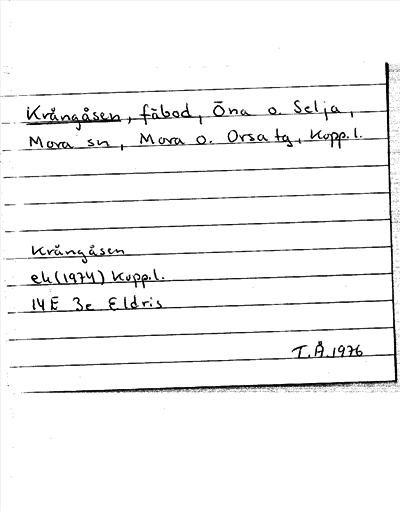 Krångåsen, fäbod, Öna o. Selja,
Mora sn, Mora o. Orsa tg, Kopp.l.
Krångåsen
ek (1974) Kopp.l.
14E 3e Eldris
T.Å.1976